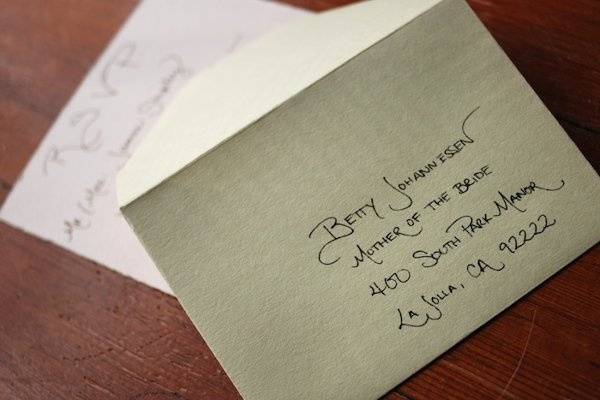 RSVP
Betty Johannessen
Mother of the Bride
400 South Park Manor
La Jolla, CA 92222